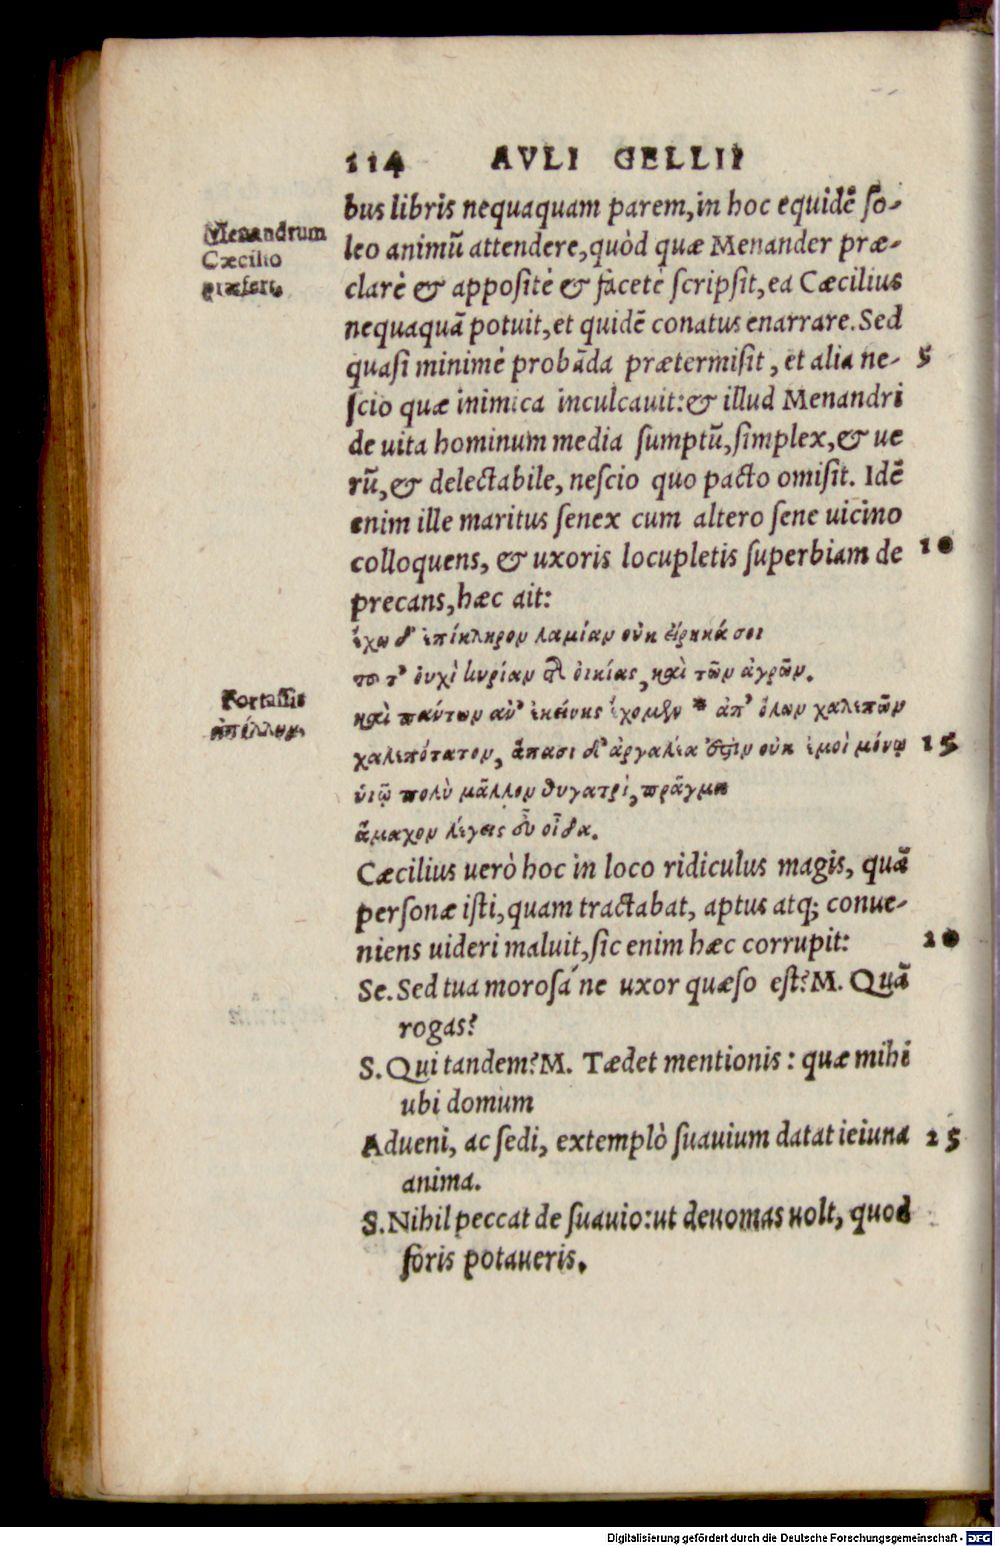 114 AVLI GELLII
bus libris nequaquam parem, in hoc equidẽ so-
leo animũ attendere, quòd quæ Menander præ-
clarè & appositè & facetè scripsit, ea Cæcilius
nequaquã potuit, et quidẽ conatus enarrare. Sed
quasi minimè probãda prætermisit, et alia ne- 5
scio quæ inimica inculcauit: & illud Menandri
de uita hominum media sumptũ, simplex, & ue
rũ, & delectabile, nescio quo pacto omisit. Idẽ
enim ille maritus senex cum altero sene uicino
colloquens, & uxoris locupletis superbiam de 10
precans, hæc ait:
ἔχω δ' ἐπίκληρον λαμίαν οὐκ εἴρηκά σοι
τοτ' ὀυχὶ κυρίαν τ̃ οἰκίας, καὶ τῶν ἀγρῶν.
καὶ πάντων ἀν' ἐκείνης ἔχομεν * ἀπ' ὅλων χαλεπῶν
χαλεπότατον, ἅπασι δ' ἀργαλέα ἐστὶν οὐκ ἐμοὶ μόνῳ 15
ὑιῷ πολὺ μᾶλλον θυγατρὶ, πρᾶγμα
ἄμαχον λέγεις εὖ οἶδα.
Cæcilius uerò hoc in loco ridiculus magis, quã
personæ isti, quam tractabat, aptus atq; conue-
niens uideri maluit, sic enim hæc corrupit: 20
Se. Sed tua morosá ne uxor quæso est? M. Quã
rogas?
S. Qui tandem? M. Tædet mentionis: quæ mihi
ubi domum
Adueni, ac sedi, extemplò suauium datat ieiuna 25
anima.
S. Nihil peccat de suauio: ut deuomas uolt, quod
foris potaueris.
Menandrum
Cæcilio
præfert.
Fortassis
Digitalisierung gefördert durch die Deutsche Forschungsgemeinschaft - DFG